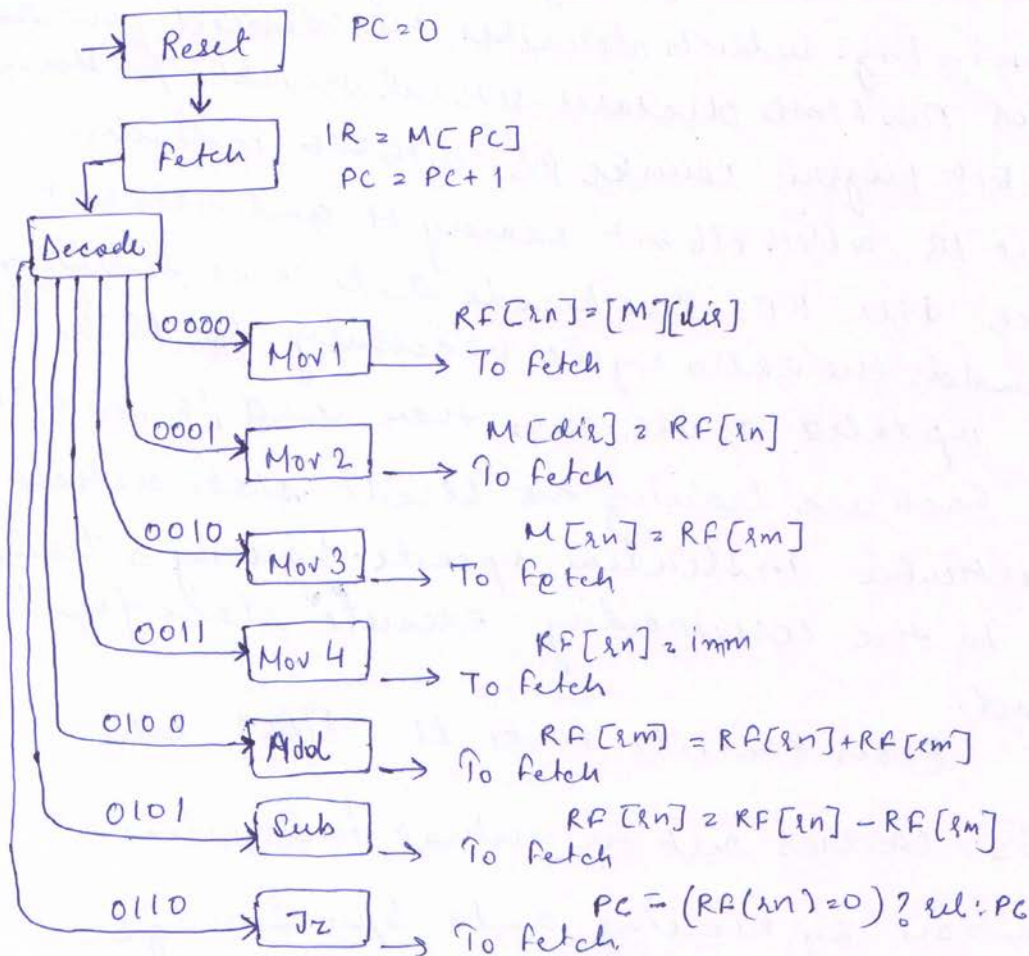 Reset PC=0
Fetch IR = M[PC]
PC = PC+1
Decode
0000 Mov 1 RF[rn] = [M][dir]
To fetch
0001 Mov 2 M[dir] = RF[rn]
To fetch
0010 Mov 3 M[rn] = RF[rm]
To fetch
0011 Mov 4 RF[rn] = imm
To fetch
0100 Add RF[rm] = RF[rn]+RF[rm]
To fetch
0101 Sub RF[rn] = RF[rn]-RF[rm]
To fetch
0110 Jz PC = (RF(rn)=0)? rel : PC
To fetch